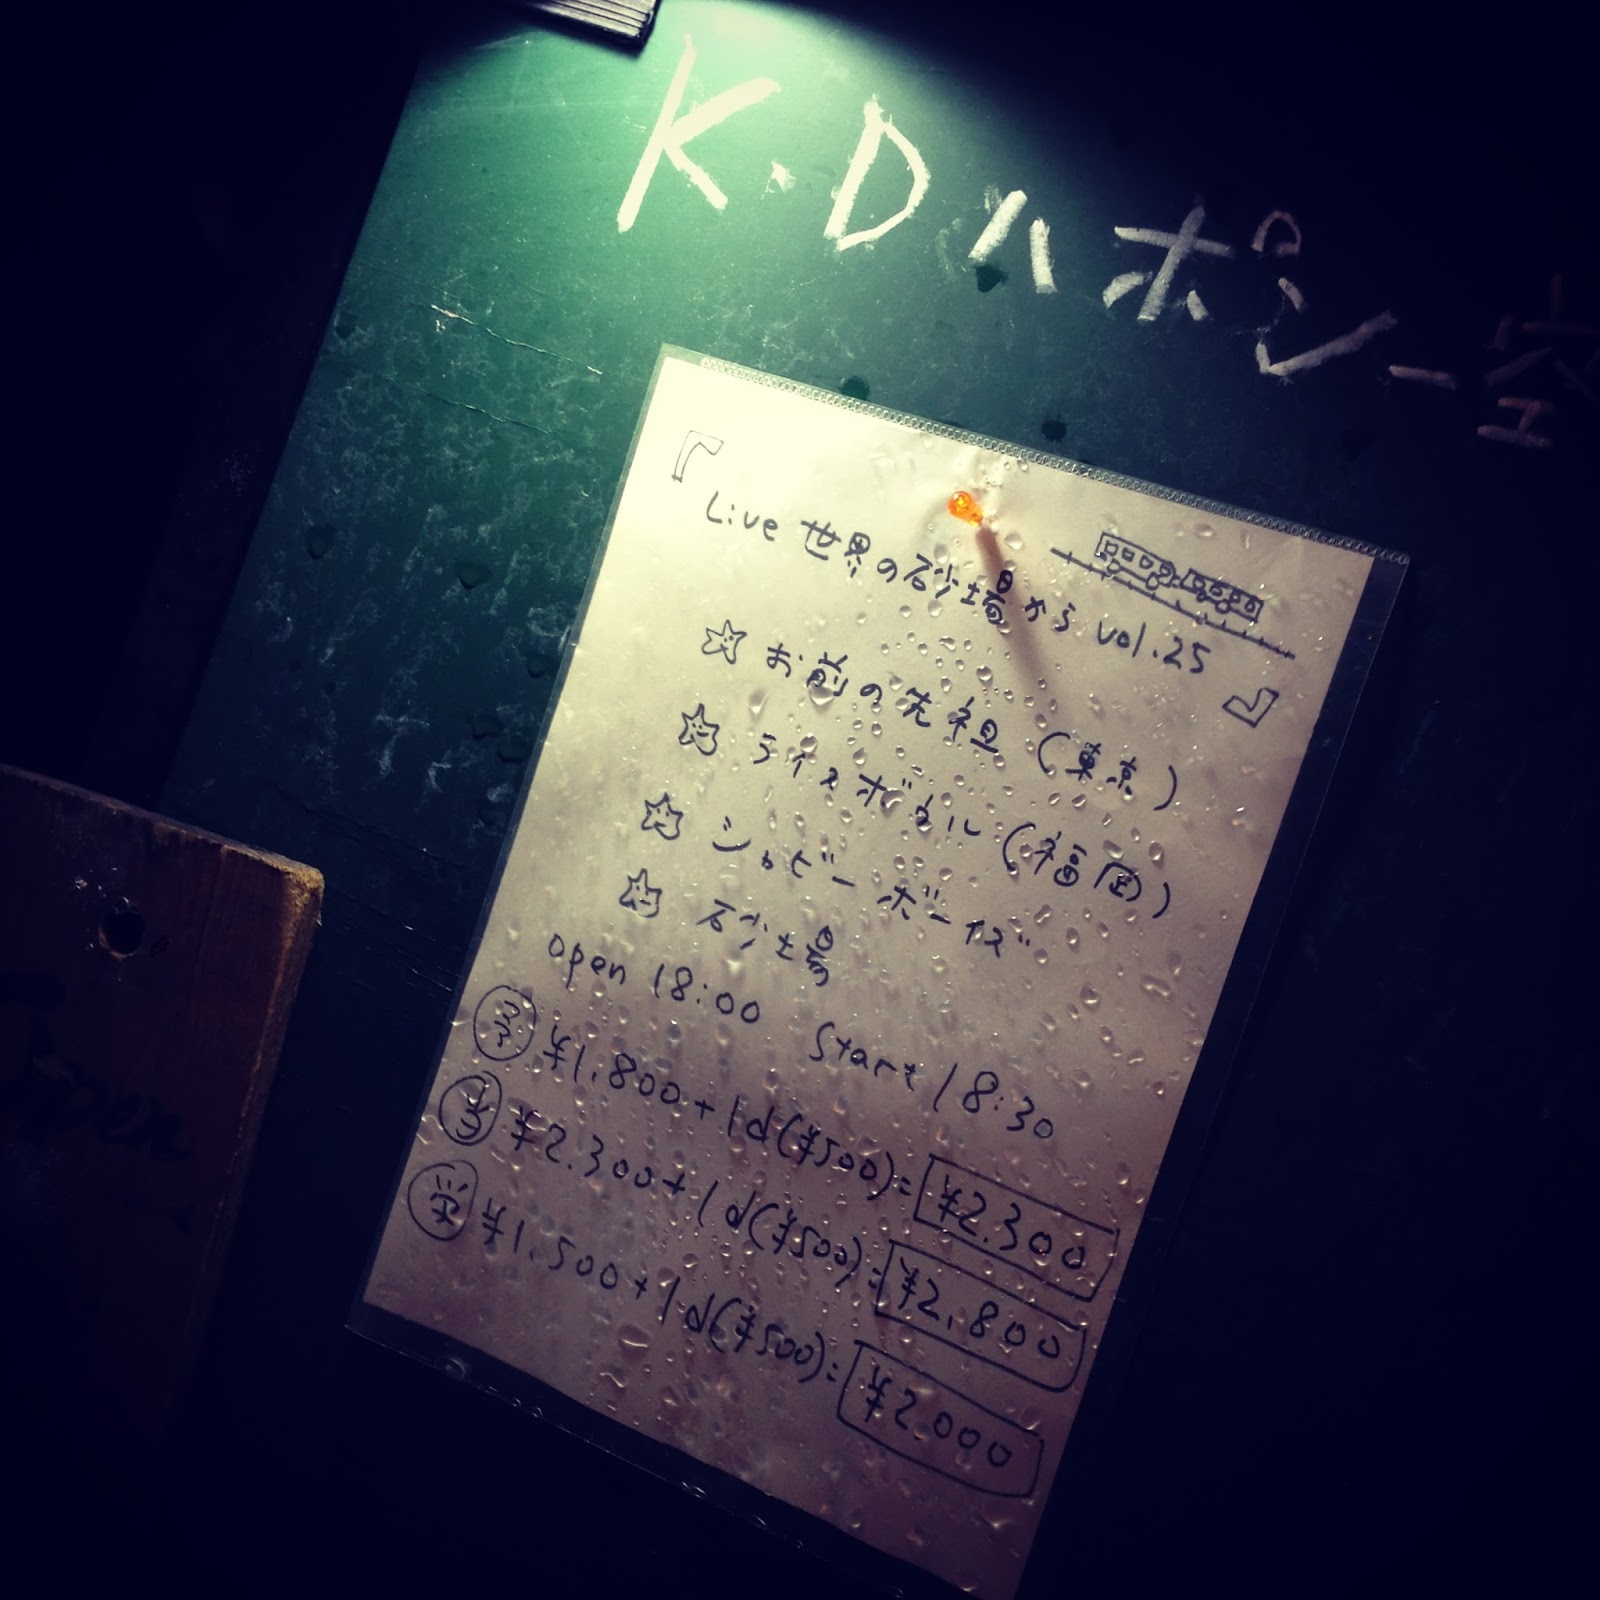 K.Dハポン一空
『Live 世界の砂場から vol.25』
☆ お前の先祖 (東京)
☆ ライスボウル (福岡)
☆ シャビーボーイズ
☆ 砂場
open 18:00 Start 18:30
予 ¥1.800+1d(¥500)=¥2.300
当 ¥2.300+1d(¥500)=¥2,800
学 ¥1.500+1d(¥500)=¥2.000